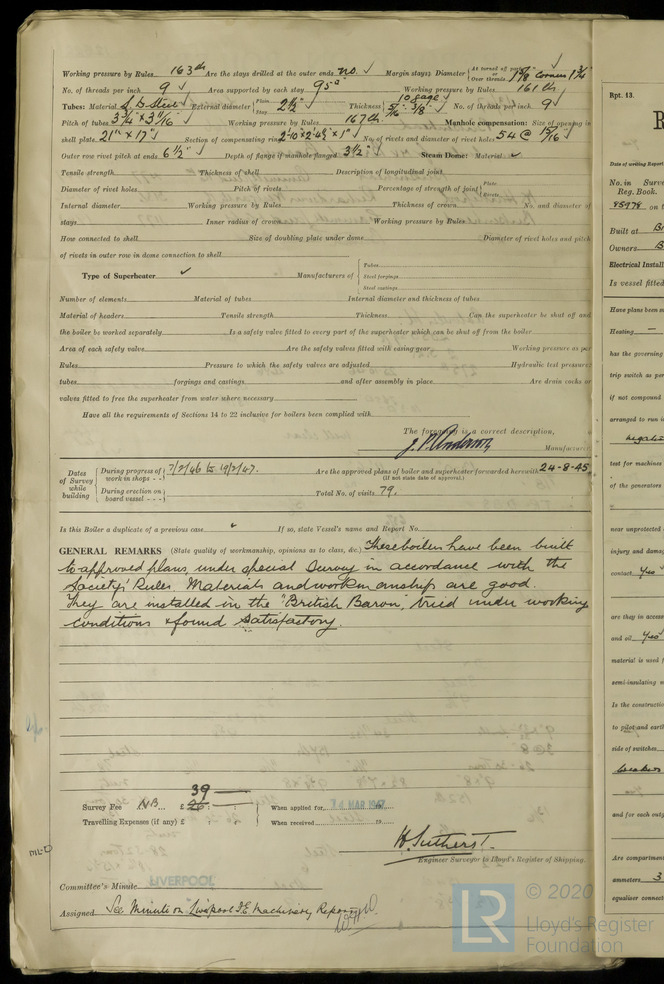 Working pressure by Rules 163 lb Are the stays drilled at the outer ends no. ✓ Margin stays: Diameter {At turned off part, or Over threads 1 5/8 Corners 1 3/4"
No. of threads per inch 9 ✓ Area supported by each stay 95" Working pressure by Rules 161 lb
Tubes: Material S.D. Steel ✓ External diameter {Plain Stay 2 1/2" Thickness {10 gage 5/16" 3/8" No. of threads per inch 9 ✓
Pitch of tubes 3 3/4" x 3 9/16" Working pressure by Rules 167 lb Manhole compensation: Size of opening in
shell plate 21" x 17" ✓ Section of compensating ring No. of rivets and diameter of rivet holes 54 @ 15/16" ✓
Outer row rivet pitch at ends 6 1/2" ✓ Depth of flange if manhole flanged 3 1/2" ✓ Steam Dome: Material ✓
Tensile strength Thickness of shell Description of longitudinal joint
Diameter of rivet holes Pitch of rivets Percentage of strength of joint {Plate Rivets
Internal diameter Working pressure by Rules Thickness of crown No. and diameter of
stays Inner radius of crown Working pressure by Rules
How connected to shell Size of doubling plate under dome Diameter of rivet holes and pitch
of rivets in outer row in dome connection to shell
Type of Superheater ✓ Manufacturers of {Tubes
Steel forgings
Steel castings
Number of elements Material of tubes Internal diameter and thickness of tubes
Material of headers Tensile strength Thickness Can the superheater be shut off and
the boiler be worked separately Is a safety valve fitted to every part of the superheater which can be shut off from the boiler
Area of each safety valve Are the safety valves fitted with easing gear Working pressure as per
Rules Pressure to which the safety valves are adjusted Hydraulic test pressure:
tubes forgings and castings and after assembly in place Are drain cocks or
valves fitted to free the superheater from water where necessary
Have all the requirements of Sections 14 to 22 inclusive for boilers been complied with
The foregoing is a correct description,
J. P. Anderson Manufacturer
Dates of Survey while building {During progress of work in shops - - 7/2/46 to 19/2/47. Are the approved plans of boiler and superheater forwarded herewith 24-8-45
(If not state date of approval.)
During erection on board vessel - - - Total No. of visits 79.
Is this Boiler a duplicate of a previous case ✓ If so, state Vessel's name and Report No.
GENERAL REMARKS (State quality of workmanship, opinions as to class, &c.) These boilers have been built
to approved plans, under special Survey in accordance with the
Society's Rules. Materials and workmanship are good.
They are installed in the "British Baron", tried under working
conditions & found satisfactory.
39
Survey Fee £ 26 : : When applied for, MAR 1947
Travelling Expenses (if any) £ : : When received 19
H. Sutherst.
Engineer Surveyor to Lloyd's Register of Shipping.
Committee's Minute LIVERPOOL
Assigned See Minute on Liverpool F.E. Machinery Report
© 2020
LR
Lloyd's Register
Foundation
Rpt. 13.
R
Date of writing Report
No. in Surve
Reg. Book.
95978 on t
Built at B
Owners B
Electrical Install
Is vessel fitted
Have plans been s
Heating —
has the governing
trip switch as per
if not compound
arranged to run i
negati
test for machines
of the generators
near unprotected
injury and damag
contact Yes
are they in access
and oil Yes
material is used f
semi-insulating m
Is the constructio
to pilot and earth
side of switches
breakers
and for each outg
Are compartment
ammeters 3
equaliser connect